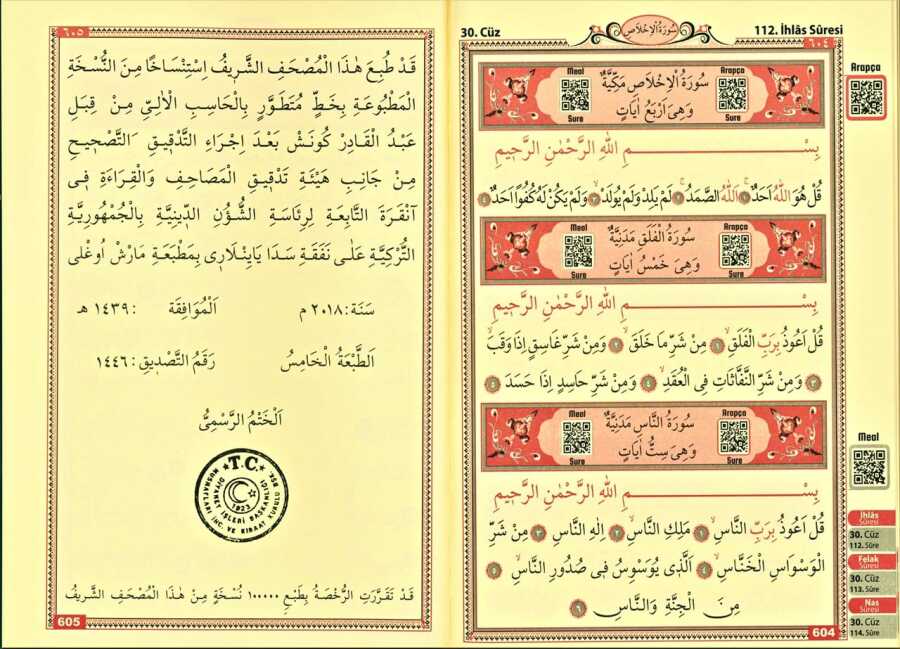 30. Cüz
سُورَةُ الْاِخْلَاصِ
112. İhlâs Sûresi
٦٠٤
Meal
Sure
سُورَةُ الْاِخْلَاصِ مَكِّيَّةٌ
وَهِىَ اَرْبَعُ اٰيَاتٍ
Arapça
Sure
بِسْــــــمِ اللّٰهِ الرَّحْمٰنِ الرَّح۪يمِ
قُلْ هُوَ اللّٰهُ اَحَدٌۚ ﴿١﴾ اَللّٰهُ الصَّمَدُۚ ﴿٢﴾ لَمْ يَلِدْ وَلَمْ يُولَدْۙ ﴿٣﴾ وَلَمْ يَكُنْ لَهُ كُفُواً اَحَدٌ ﴿٤﴾
Meal
Sure
سُورَةُ الْفَلَقِ مَدَنِيَّةٌ
وَهِىَ خَمْسُ اٰيَاتٍ
Arapça
Sure
بِسْــــــمِ اللّٰهِ الرَّحْمٰنِ الرَّح۪يمِ
قُلْ اَعُوذُ بِرَبِّ الْفَلَقِۙ ﴿١﴾ مِنْ شَرِّ مَا خَلَقَۙ ﴿٢﴾ وَمِنْ شَرِّ غَاسِقٍ اِذَا وَقَبَۙ
﴿٣﴾ وَمِنْ شَرِّ النَّفَّاثَاتِ فِى الْعُقَدِۙ ﴿٤﴾ وَمِنْ شَرِّ حَاسِدٍ اِذَا حَسَدَ ﴿٥﴾
Meal
Sure
سُورَةُ النَّاسِ مَدَنِيَّةٌ
وَهِىَ سِتُّ اٰيَاتٍ
Arapça
Sure
بِسْــــــمِ اللّٰهِ الرَّحْمٰنِ الرَّح۪يمِ
قُلْ اَعُوذُ بِرَبِّ النَّاسِۙ ﴿١﴾ مَلِكِ النَّاسِۙ ﴿٢﴾ اِلٰهِ النَّاسِۙ ﴿٣﴾ مِنْ شَرِّ
الْوَسْوَاسِ الْخَنَّاسِۙ ﴿٤﴾ اَلَّذ۪ى يُوَسْوِسُ ف۪ى صُدُورِ النَّاسِۙ ﴿٥﴾
مِنَ الْجِنَّةِ وَالنَّاسِ ﴿٦﴾
604
Arapça
Meal
İhlâs
Sûresi
30. Cüz
112. Sûre
Felak
Sûresi
30. Cüz
113. Sûre
Nas
Sûresi
30. Cüz
114. Sûre
٦٠٥
قَدْ طُبِعَ هٰذَا الْمُصْحَفُ الشَّر۪يفُ اِسْتِنْسَاخًا مِنَ النُّسْخَةِ
الْمَطْبُوعَةِ بِخَطٍّ مُتَطَوِّرٍ بِالْحَاسِبِ الْاٰلِيِّ مِنْ قِبَلِ
عَبْدُ الْقَادِرْ كُونَشْ بَعْدَ اِجْرَاءِ التَّدْق۪يقِ ـ التَّصْح۪يحِ
مِنْ جَانِبِ هَيْئَةِ تَدْق۪يقِ الْمَصَاحِفِ وَالْقِرَاءَةِ ف۪ى
آنْقَرَةَ التَّابِعَةِ لِرِئَاسَةِ الشُّؤُنِ الدّ۪ينِيَّةِ بِالْجُمْهُورِيَّةِ
التُّرْكِيَّةِ عَلٰى نَفَقَةِ سَدَا يَايِنْلَارِى بِمَطْبَعَةِ مَارْشْ اُوغْلى
سَنَة: ٢٠١٨ م اَلْمُوَافِقَة : ١٤٣٩ هـ
اَلطَّبْعَةُ الْخَامِسُ رَقَمُ التَّصْد۪يقِ: ١٤٤٦
اَلْخَتْمُ الرَّسْمِىُّ
T.C.
DİYANET İŞLERİ BAŞKANLIĞI
MUSHAFLARI İNC. VE KIRAAT KURULU
1923
قَدْ تَقَرَّرَتِ الرُّخْصَةُ بِطَبْعِ ١٠٠٠٠٠ نُسْخَةٍ مِنْ هٰذَا الْمُصْحَفِ الشَّر۪يفُ
605